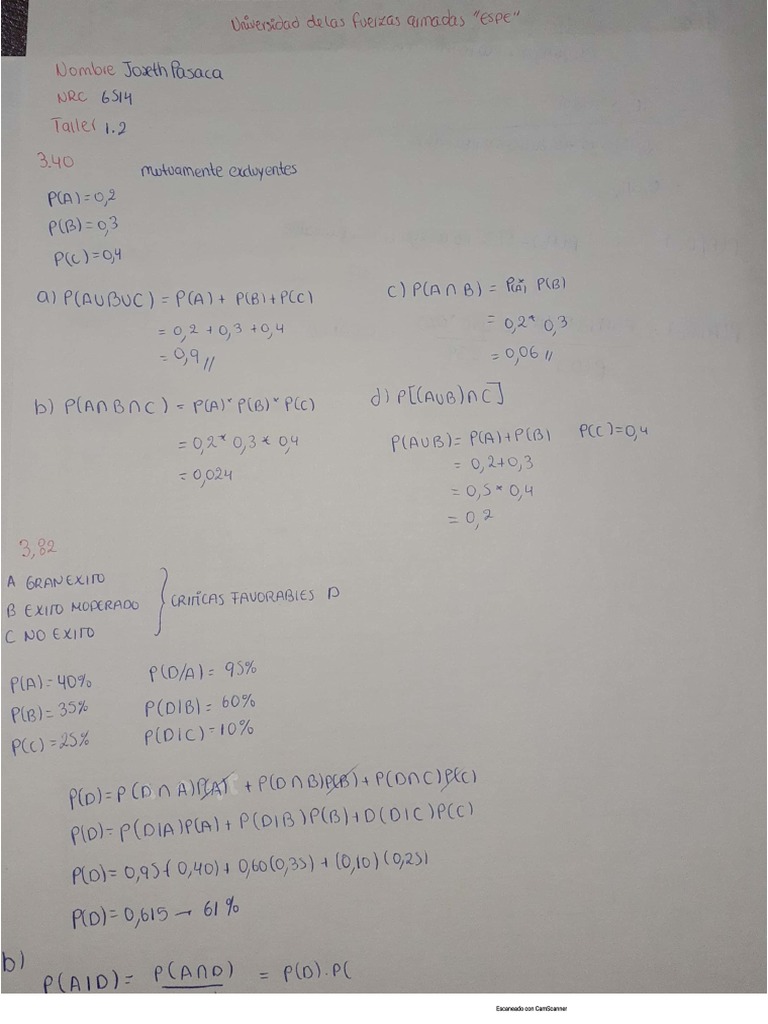 Universidad de las fuerzas armadas "ESPE"
Nombre Joseth Pasaca
NRC 6514
Taller 1.2
3.40 mutuamente excluyentes
P(A)=0,2
P(B)=0,3
P(C)=0,4
a) P(AUBUC) = P(A) + P(B) + P(C)
= 0,2 + 0,3 + 0,4
= 0,9 //
b) P(A∩B∩C) = P(A)* P(B)* P(C)
= 0,2* 0,3* 0,4
= 0,024
c) P(A∩B) = P(A)* P(B)
= 0,2* 0,3
= 0,06 //
d) P[(AUB)∩C]
P(AUB)= P(A)+P(B) P(C)=0,4
= 0,2+0,3
= 0,5* 0,4
= 0,2
3,82
A GRAN EXITO
B EXITO MODERADO
C NO EXITO
CRITICAS FAVORABLES D
P(A)=40% P(D/A)= 95%
P(B)=35% P(D|B)= 60%
P(C)=25% P(D|C)=10%
P(D)=P(D∩A)P(A) + P(D∩B)P(B)+P(D∩C)P(C)
P(D)=P(D|A)P(A)+P(D|B)P(B)+D(D|C)P(C)
P(D)=0,95(0,40)+0,60(0,35)+(0,10)(0,25)
P(D)=0,615 → 61%
b)
P(A|D)= P(A∩D) = P(D).P(
Escaneado con CamScanner